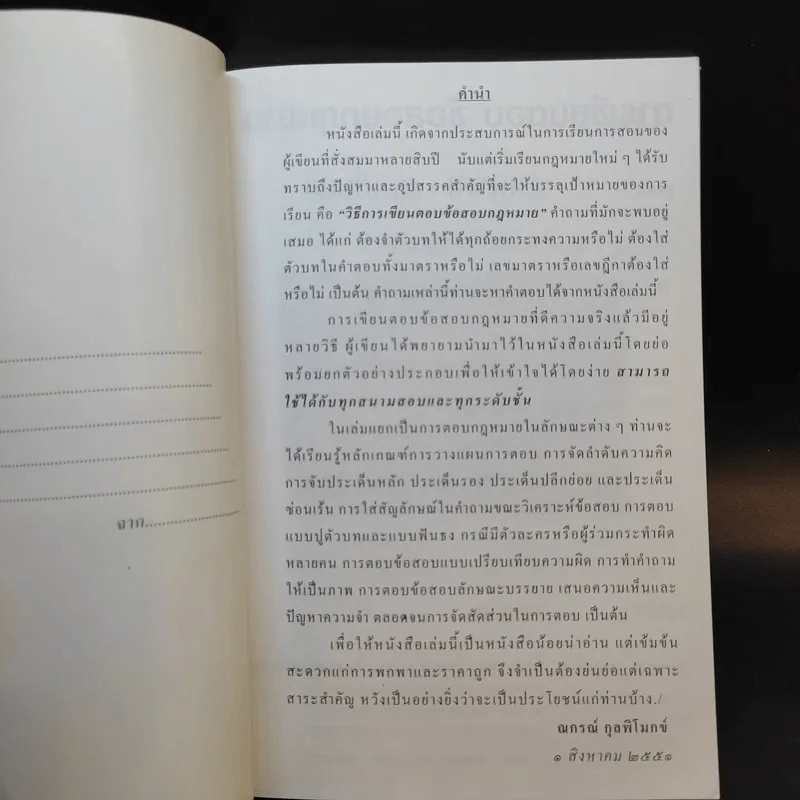 จาก
คำนำ
หนังสือเล่มนี้ เกิดจากประสบการณ์ในการเรียนการสอนของ
ผู้เขียนที่สั่งสมมาหลายสิบปี นับแต่เริ่มเรียนกฎหมายใหม่ ๆ ได้รับ
ทราบถึงปัญหาและอุปสรรคสำคัญที่จะให้บรรลุเป้าหมายของการ
เรียน คือ “วิธีการเขียนตอบข้อสอบกฎหมาย” คำถามที่มักจะพบอยู่
เสมอ ได้แก่ ต้องจำตัวบทให้ได้ทุกถ้อยกระทงความหรือไม่ ต้องใส่
ตัวบทในคำตอบทั้งมาตราหรือไม่ เลขมาตราหรือเลขฎีกาต้องใส่
หรือไม่ เป็นต้น คำถามเหล่านี้ท่านจะหาคำตอบได้จากหนังสือเล่มนี้
การเขียนตอบข้อสอบกฎหมายที่ดีความจริงแล้วมีอยู่
หลายวิธี ผู้เขียนได้พยายามนำมาไว้ในหนังสือเล่มนี้โดยย่อ
พร้อมยกตัวอย่างประกอบเพื่อให้เข้าใจได้โดยง่าย สามารถ
ใช้ได้กับทุกสนามสอบและทุกระดับชั้น
ในเล่มแยกเป็นการตอบกฎหมายในลักษณะต่าง ๆ ท่านจะ
ได้เรียนรู้หลักเกณฑ์การวางแผนการตอบ การจัดลำดับความคิด
การจับประเด็นหลัก ประเด็นรอง ประเด็นปลีกย่อย และประเด็น
ซ่อนเร้น การใส่สัญลักษณ์ในคำถามขณะวิเคราะห์ข้อสอบ การตอบ
แบบปูตัวบทและแบบฟันธง กรณีมีตัวละครหรือผู้ร่วมกระทำผิด
หลายคน การตอบข้อสอบแบบเปรียบเทียบความผิด การทำคำถาม
ให้เป็นภาพ การตอบข้อสอบลักษณะบรรยาย เสนอความเห็นและ
ปัญหาความจำ ตลอดจนการจัดสัดส่วนในการตอบ เป็นต้น
เพื่อให้หนังสือเล่มนี้เป็นหนังสือน้อยน่าอ่าน แต่เข้มข้น
สะดวกแก่การพกพาและราคาถูก จึงจำเป็นต้องย่นย่อแต่เฉพาะ
สาระสำคัญ หวังเป็นอย่างยิ่งว่าจะเป็นประโยชน์แก่ท่านบ้าง./
ณกรณ์ กุลพิโมกข์
๑ สิงหาคม ๒๕๕๑